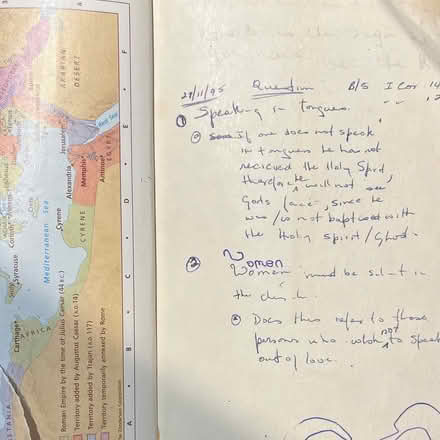 29/11/95 Question B/S I Cor 14
① Speaking in tongues.
If one does not speak
in tongues he has not
recieved the Holy Spirit
therefore will not see
Gods face, since he
was / is not baptised with
the Holy Spirit / Ghost.
② Women
Women must be silent in
the church.
Does this refer to those
persons who wish not to speak
out of love.
ARABIAN
DESERT
Red Sea
Jerusalem
EGYPT
Alexandria
Memphis
Antinoe
Mediterranean Sea
Cyrene
CYRENE
Crete
Corinth
Athens
Sicily
Syracuse
Carthage
AFRICA
Roman Empire by the time of Julius Caesar (44 B.C.)
Territory added by Augustus Caesar (A.D. 14)
Territory added by Trajan (A.D. 117)
Territory temporarily annexed by Rome
A
B
C
D
E
F